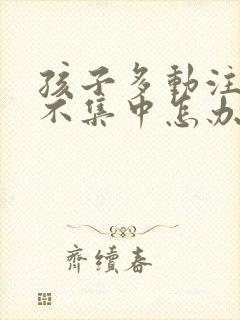 孩子多動注
不集中怎办
齊續春